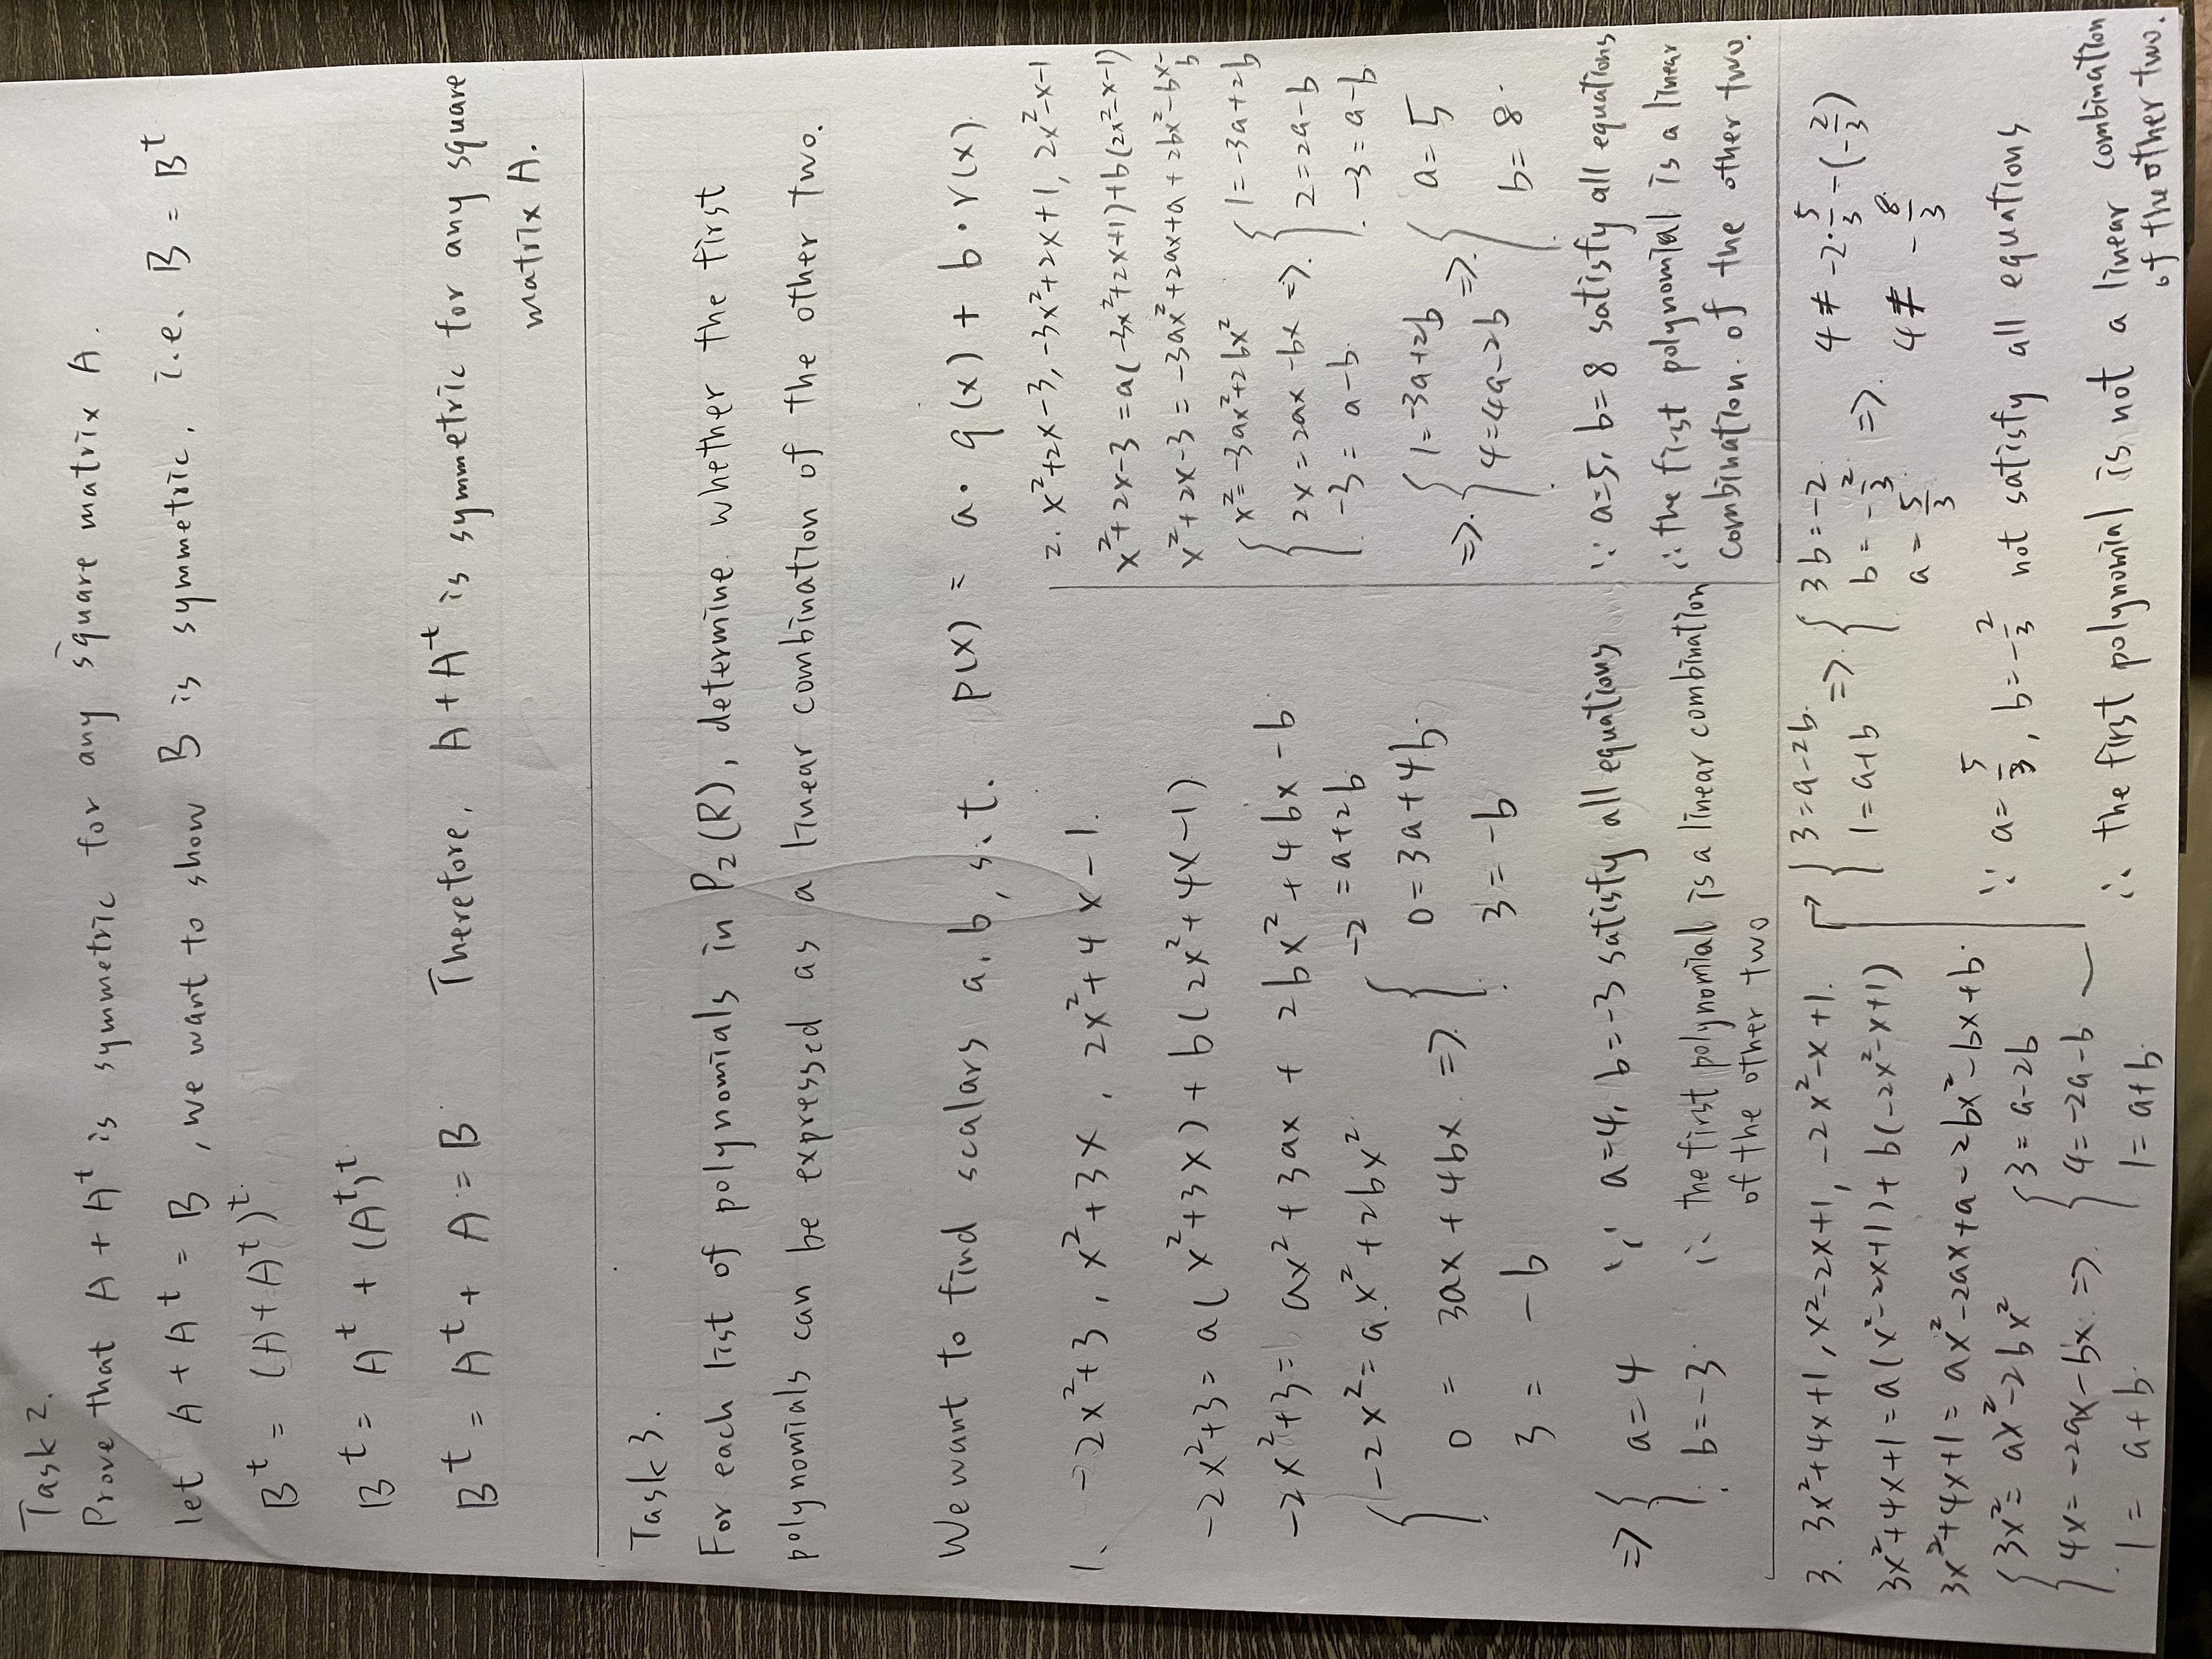 Task 2.
Prove that A + A^t is symmetric for any square matrix A.
let A + A^t = B, we want to show B is symmetric, i.e. B = B^t
B^t = (A + A^t)^t
B^t = A^t + (A^t)^t
B^t = A^t + A = B Therefore, A + A^t is symmetric for any square
matrix A.
Task 3.
For each list of polynomials in P₂(R), determine whether the first
polynomials can be expressed as a linear combination of the other two.
We want to find scalars a, b, s.t. p(x) = a · q(x) + b · r(x)
1. -2x²+3, x²+3x, 2x²+4x-1.
-2x²+3 = a(x²+3x) + b(2x²+4x-1)
-2x²+3 = ax²+3ax + 2bx²+4bx-b
{ -2x² = ax²+2bx²
0 = 3ax+4bx
3 = -b
=> { -2 = a+2b
0 = 3a+4b
3 = -b
=> { a=4
b=-3
∵ a=4, b=-3 satisfy all equations
∴ the first polynomial is a linear combination
of the other two
2. x²+2x-3, -3x²+2x+1, 2x²-x-1
x²+2x-3 = a(-3x²+2x+1)+b(2x²-x-1)
x²+2x-3 = -3ax²+2ax+a+2bx²-bx-
b
{ x² = -3ax²+2bx²
2x = 2ax-bx
-3 = a-b
=> { 1=-3a+2b
2=2a-b
-3=a-b
=> { 1=-3a+2b
4=4a-2b
=> { a=5
b=8
∵ a=5, b=8 satisfy all equations
∴ the first polynomial is a linear
combination of the other two.
3. 3x²+4x+1, x²-2x+1, -2x²-x+1.
3x²+4x+1 = a(x²-2x+1)+b(-2x²-x+1)
3x²+4x+1 = ax²-2ax+a-2bx²-bx+b
{ 3x² = ax²-2bx²
4x = -2ax-bx
1 = a+b
=> { 3=a-2b
4=-2a-b
1=a+b
→ { 3=a-2b
1=a+b
=> { 3b=-2
b=-2/3
a=5/3
=> 4≠-2·5/3-(-2/3)
4≠-8/3
∵ a=5/3, b=-2/3 not satisfy all equations
∴ the first polynomial is not a linear combination
of the other two.